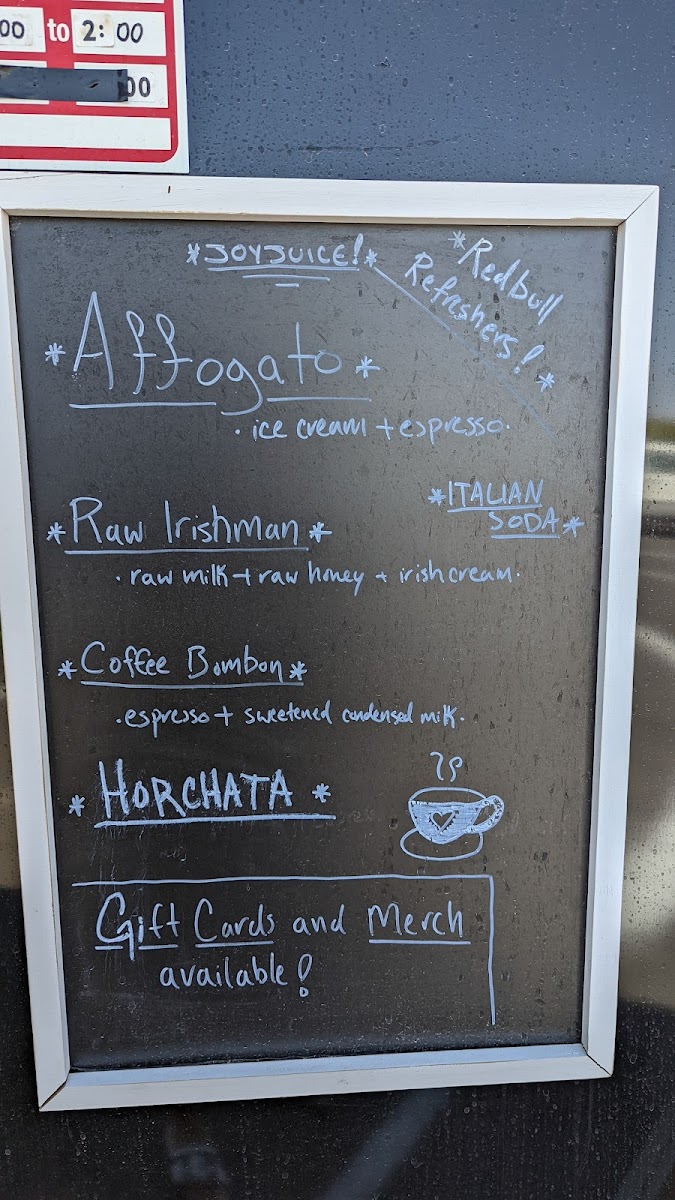 00 to 2:00
00
*JOYJUICE!*
*Redbull
Refreshers!*
*Affogato*
· ice cream + espresso ·
*ITALIAN
SODA*
*Raw Irishman*
· raw milk + raw honey + irish cream ·
*Coffee Bombon*
· espresso + sweetened condensed milk ·
*HORCHATA*
Gift Cards and Merch
available!